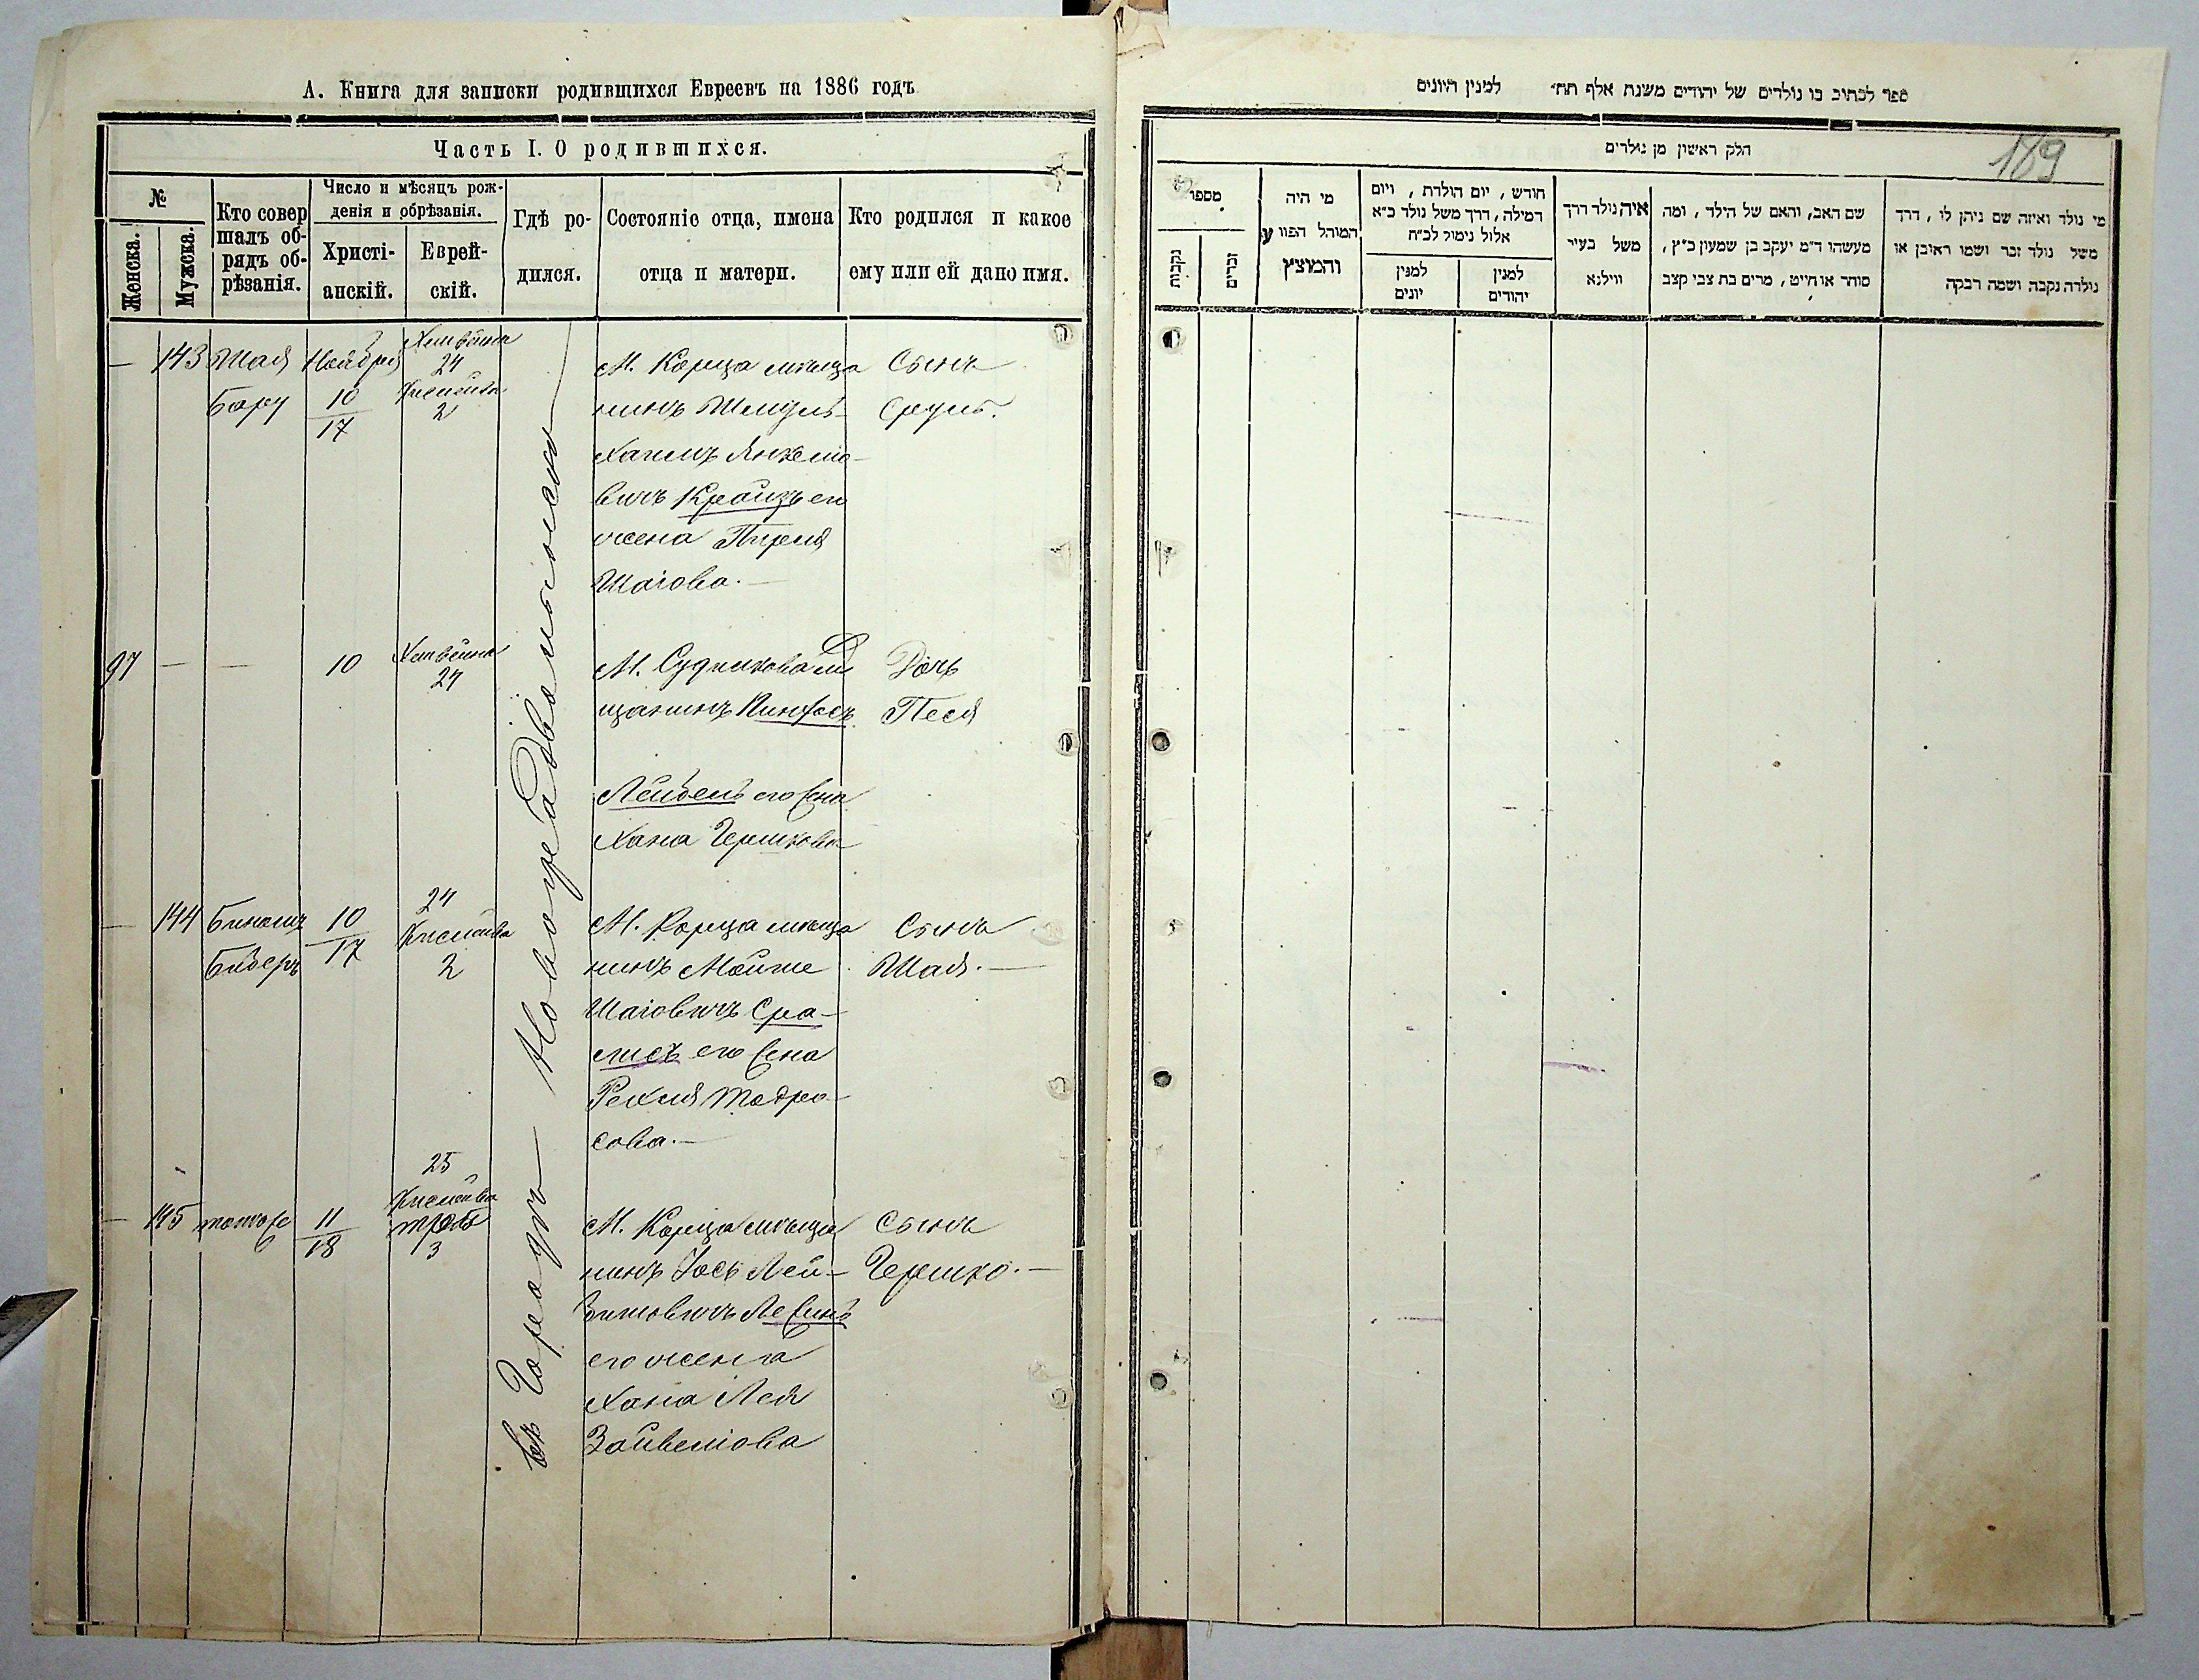 А. Книга для записки родившихся Евреевъ на 1886 годъ
Часть I. О родившихся.
№
Женска.
Мужска.
Кто совер
шалъ об-
рядъ об-
рѣзанія.
Число и мѣсяцъ рож-
денія и обрѣзанія.
Христі-
анскій.
Еврей-
скій.
Гдѣ ро-
дился.
Состояніе отца, имена
отца и матери.
Кто родился и какое
ему или ей дано имя.
— 143 Шая
Бару
Ноября
10
17
24
2
М. Корца мѣща
нинъ
Хаимъ Янкеліо-
вичъ его
жена Перля
Шаіова.—
Сынъ
Сруль.
97 — —
10
24
М. Судилкова мѣ
щанинъ Пинхосъ
его жена
Хана Гершкова
Дочь
Песя
— 144
10
17
24
Кислейва
2
М. Корца мѣща
нинъ Мойше
Шаіовичъ
его жена
Тодро-
сова.—
Сынъ
Шая.—
— 145 тотже
11
18
25
Кислейва
3
М. Корца мѣща
нинъ Іось Лей-
его жена
Хана Лея
Зайвеліова
Сынъ
Гершко.—
Въ Городѣ Новоградволынскѣ
ספר לכתוב בו נולדים של יהודים משנת אלף תת״ למנין היונים
189
חלק ראשון מן נולדים
מספר
נקבות
זכרים
מי היה
המוהל הפורע
והמוצץ
חודש, יום הולדת, ויום
המילה, דרך משל נולד כ״א
אלול נימול לכ״ח
למנין
יונים
למנין
יהודים
איה נולד דרך
משל בעיר
ווילנא
שם האב, והאם של הילד, ומה
מעשהו ד״מ יעקב בן שמעון כ״ץ,
סוחר או חייט, מרים בת צבי קצב
מי נולד ואיזה שם ניתן לו, דרך
משל נולד זכר ושמו ראובן או
נולדה נקבה ושמה רבקה